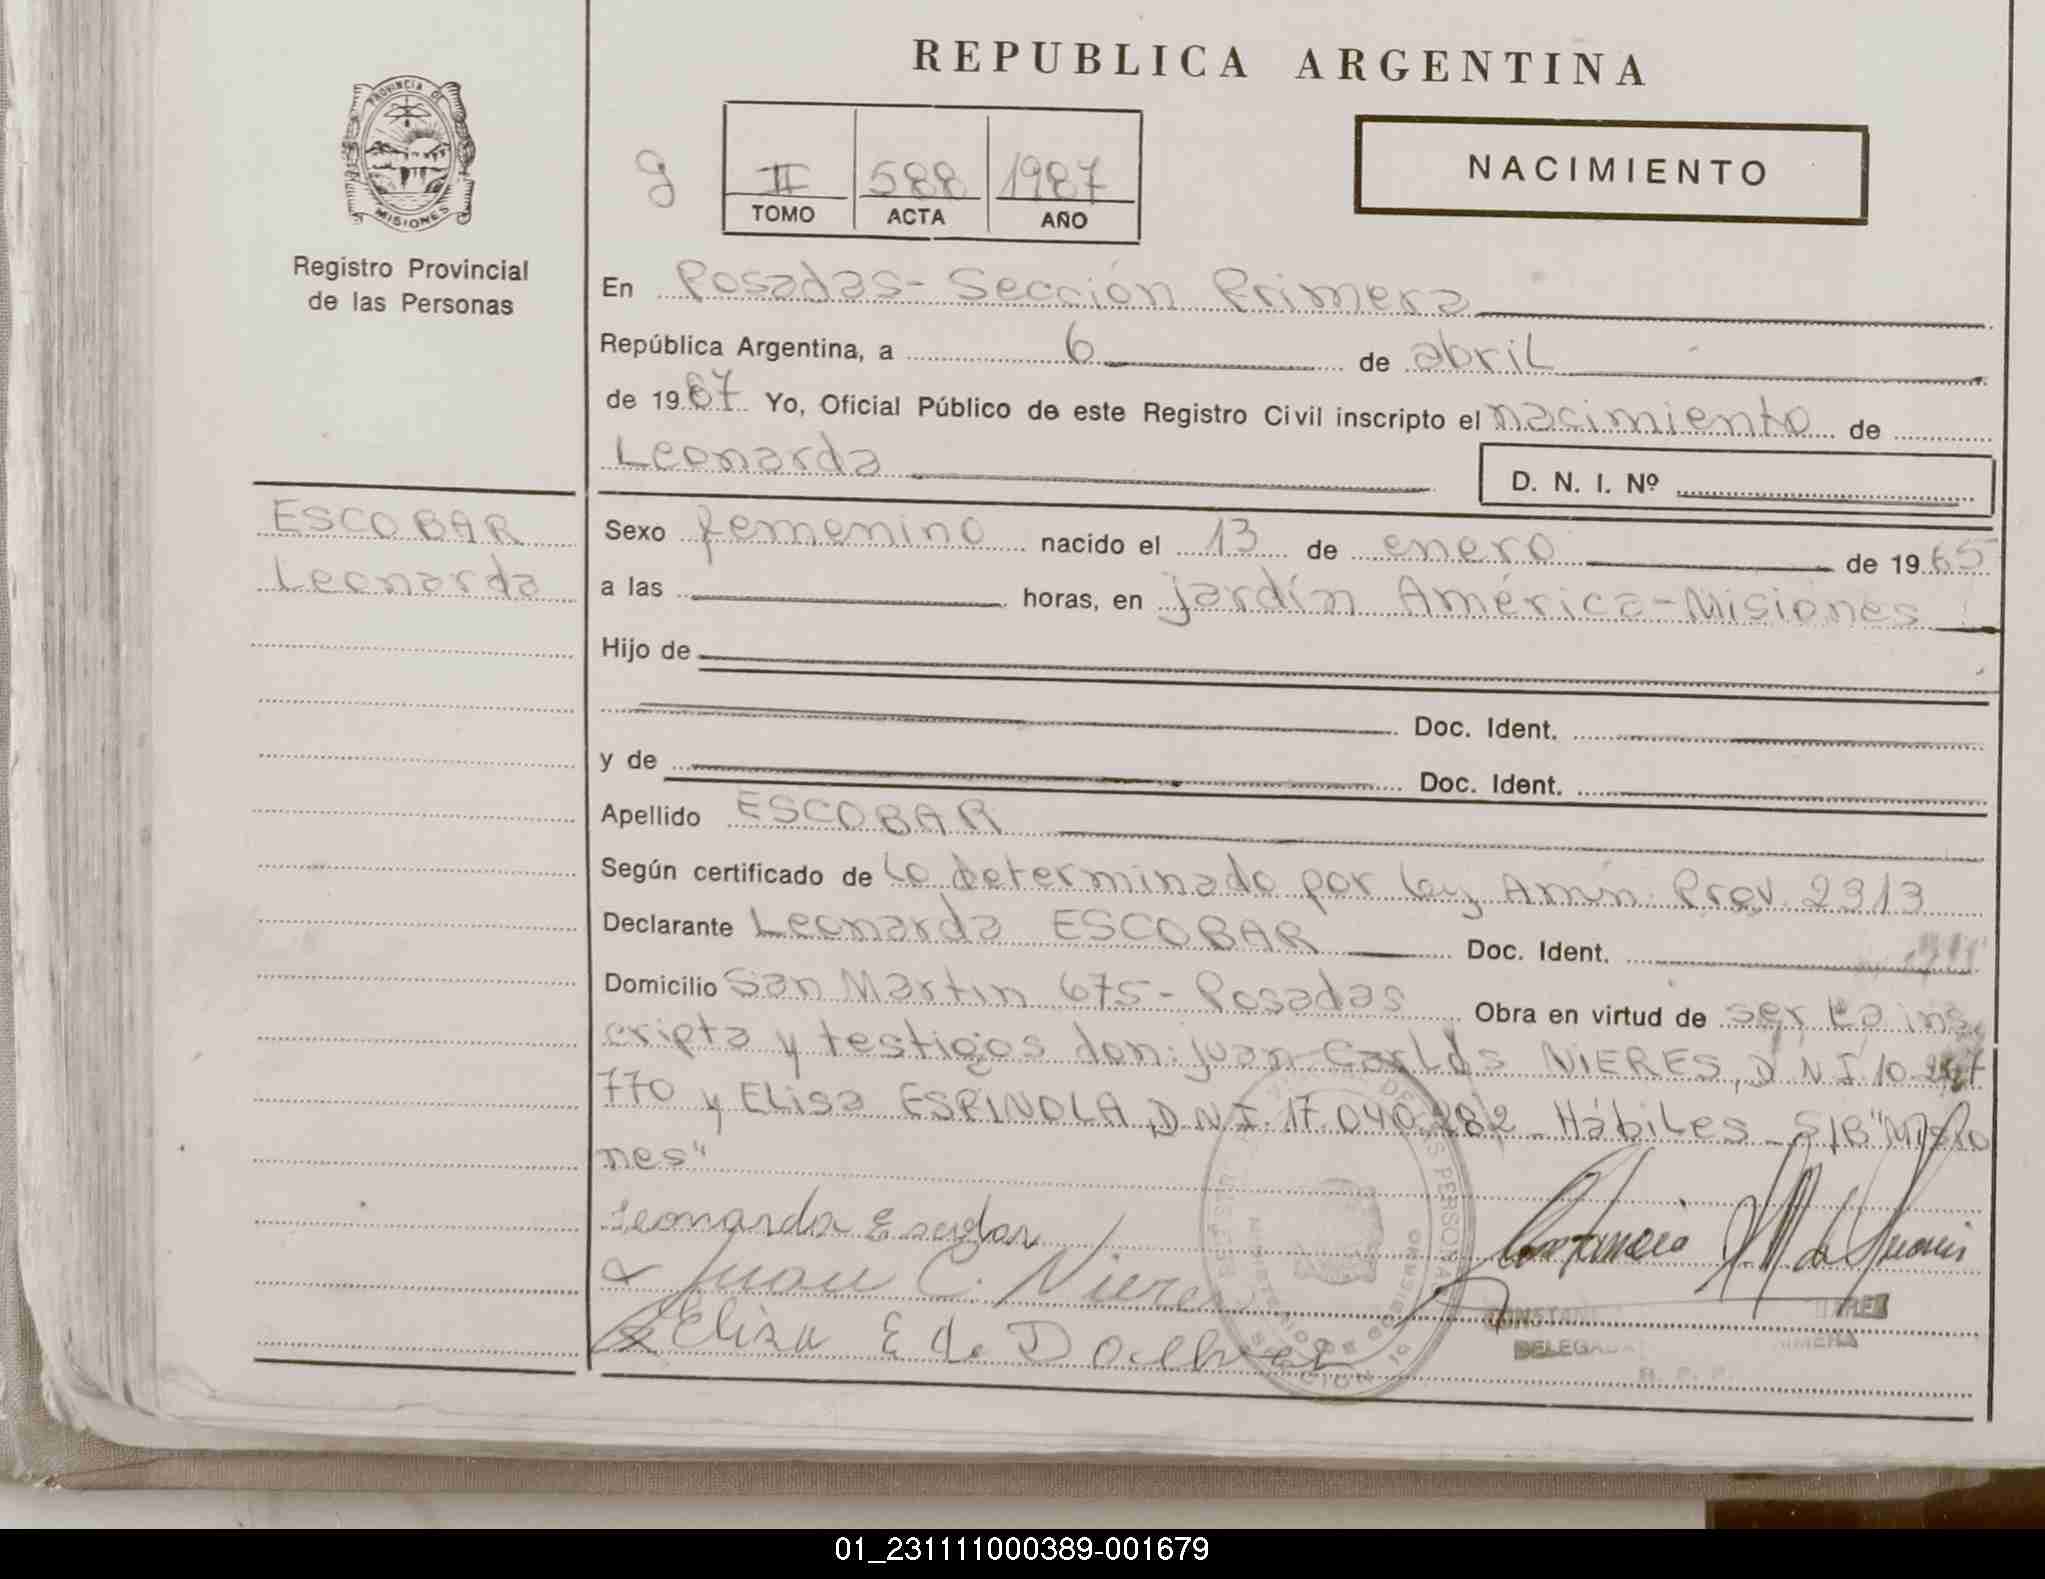 REPUBLICA ARGENTINA
PROVINCIA DE
MISIONES
Registro Provincial
de las Personas
g
II 588 1987
TOMO ACTA AÑO
NACIMIENTO
En Posadas- Sección Primera
República Argentina, a 6 de abril
de 1987 Yo, Oficial Público de este Registro Civil inscripto el nacimiento de
Leonarda
D. N. I. Nº
ESCOBAR
Leonarda
Sexo femenino nacido el 13 de enero de 1965
a las horas, en Jardín América-Misiones
Hijo de
Doc. Ident.
y de Doc. Ident.
Apellido ESCOBAR
Según certificado de lo determinado por ley Amn. Prov. 2313
Declarante Leonarda ESCOBAR Doc. Ident.
Domicilio San Martin 675- Posadas Obra en virtud de ser la ins
cripta y testigos don: Juan Carlos NIERES, D N I 10.247
770 y Elisa ESPINOLA D.N.I. 17.040.282 Hábiles S/B "Misio
nes"
Leonarda Escobar
Juan C. Nieres
Eliza E de D
CONSTAN
DELEGADA PRIMERA
R. P. P.
01_231111000389-001679